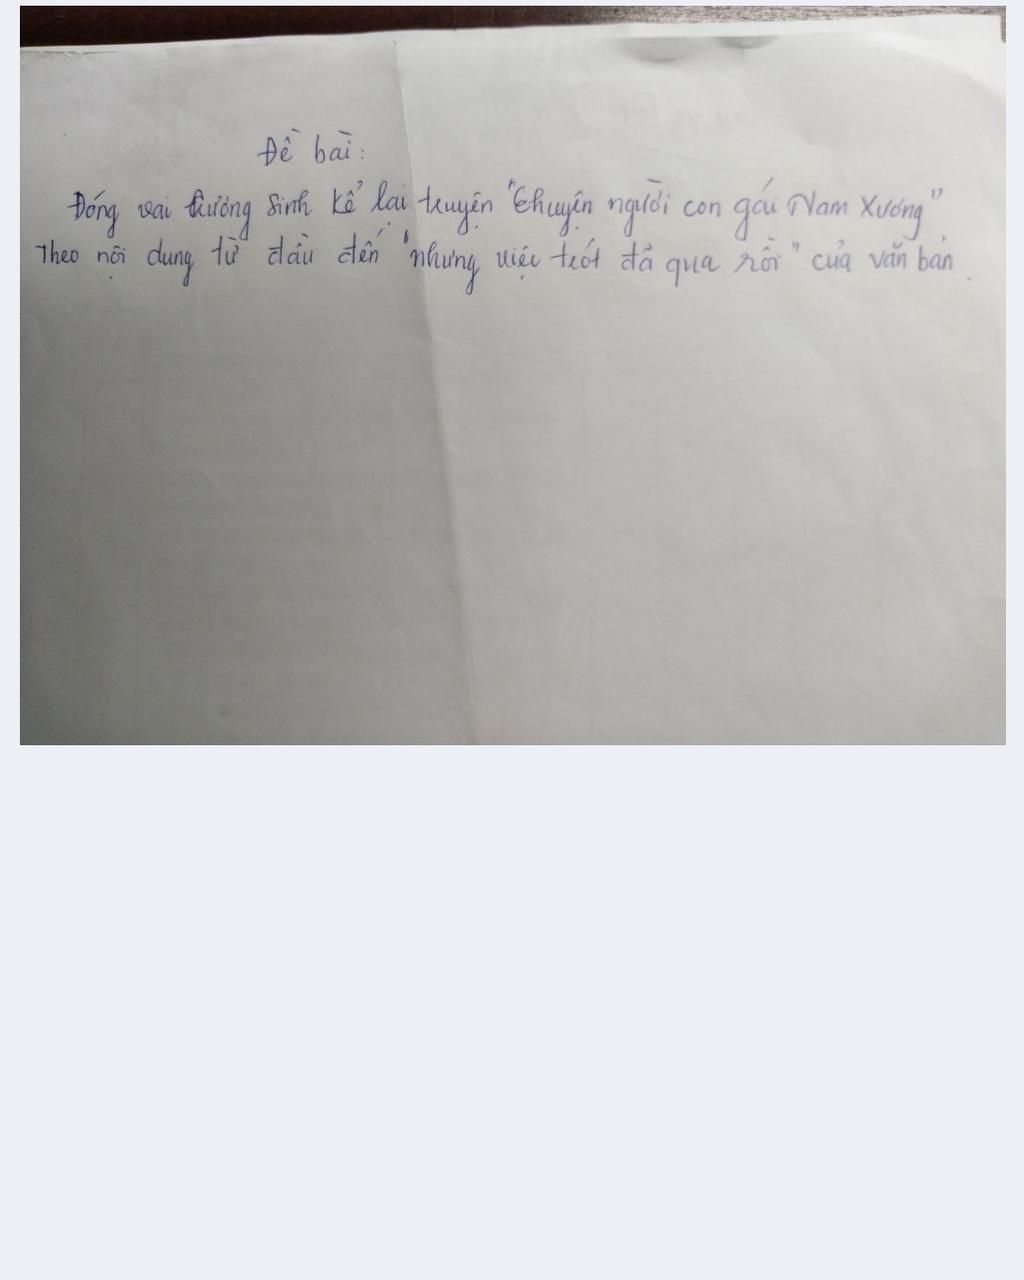 Đề bài:
Đóng vai trương Sinh kể lại truyện "Chuyện người con gái Nam Xương"
Theo nội dung từ đầu đến "nhưng việc trót đã qua rồi" của văn bản.